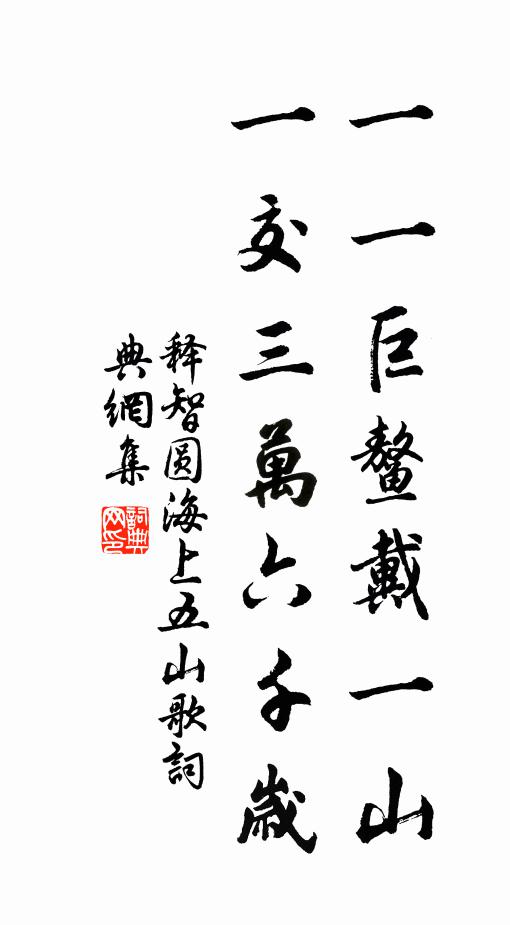 一一巨鳌戴一山
一交三萬六千歲
释智圆海上五山歌詞
典網集
詞典網印